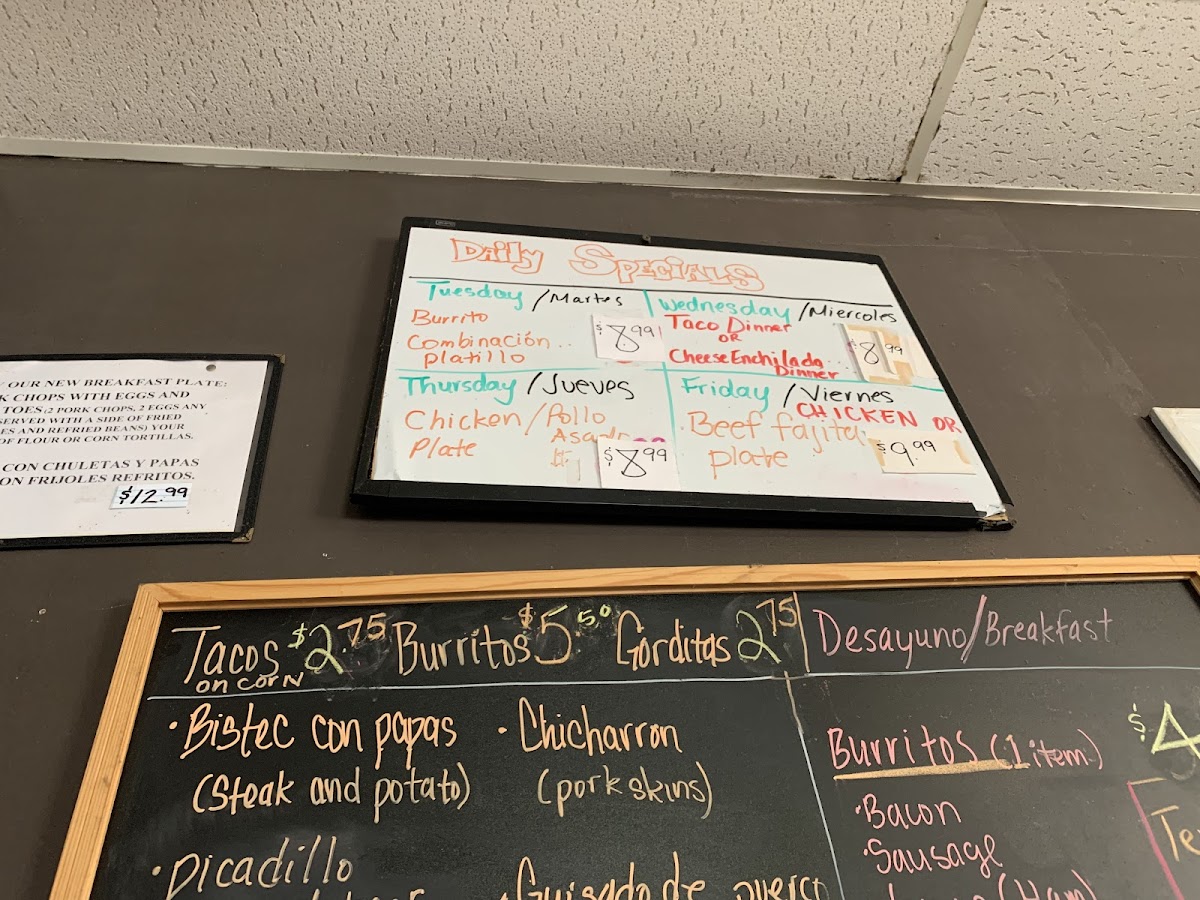 Daily Specials
Tuesday / Martes
Burrito
Combinación..
platillo
$8.99
Wednesday / Miercoles
Taco Dinner
OR
Cheese Enchilada..
Dinner
$8.99
Thursday / Jueves
Chicken / Pollo
Plate
$8.99
Friday / Viernes
CHICKEN OR
Beef fajita
plate
$9.99
OUR NEW BREAKFAST PLATE:
CHOPS WITH EGGS AND
(2 PORK CHOPS, 2 EGGS ANY
SERVED WITH A SIDE OF FRIED
AND REFRIED BEANS) YOUR
OF FLOUR OR CORN TORTILLAS.
CON CHULETAS Y PAPAS
FRIJOLES REFRITOS.
$12.99
Tacos $2.75 Burritos $5.50 Gorditas 2 75
on corn
• Bistec con papas
(Steak and potato)
• Picadillo
• Chicharron
(pork skins)
• Guisado de puerco
Desayuno/Breakfast
Burritos (1 item) $4
• Bacon
• Sausage
(Ham)